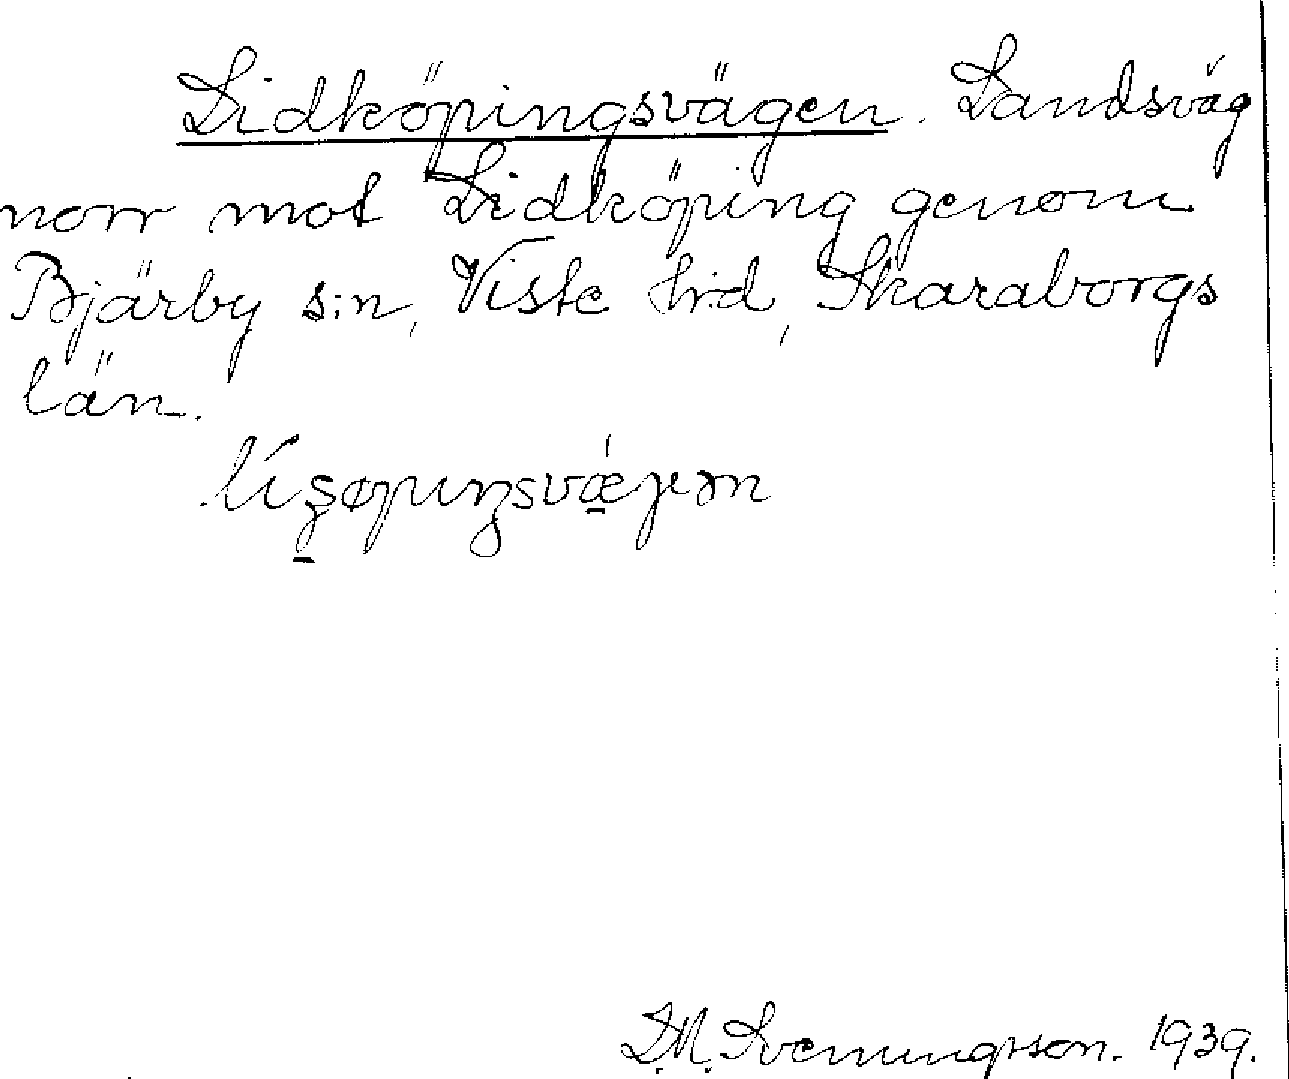 Lidköpingsvägen. Landsväg
norr mot Lidköping genom
Bjärby s:n, Viste h:d, Skaraborgs
län.
D.M. Svenungsson. 1939.